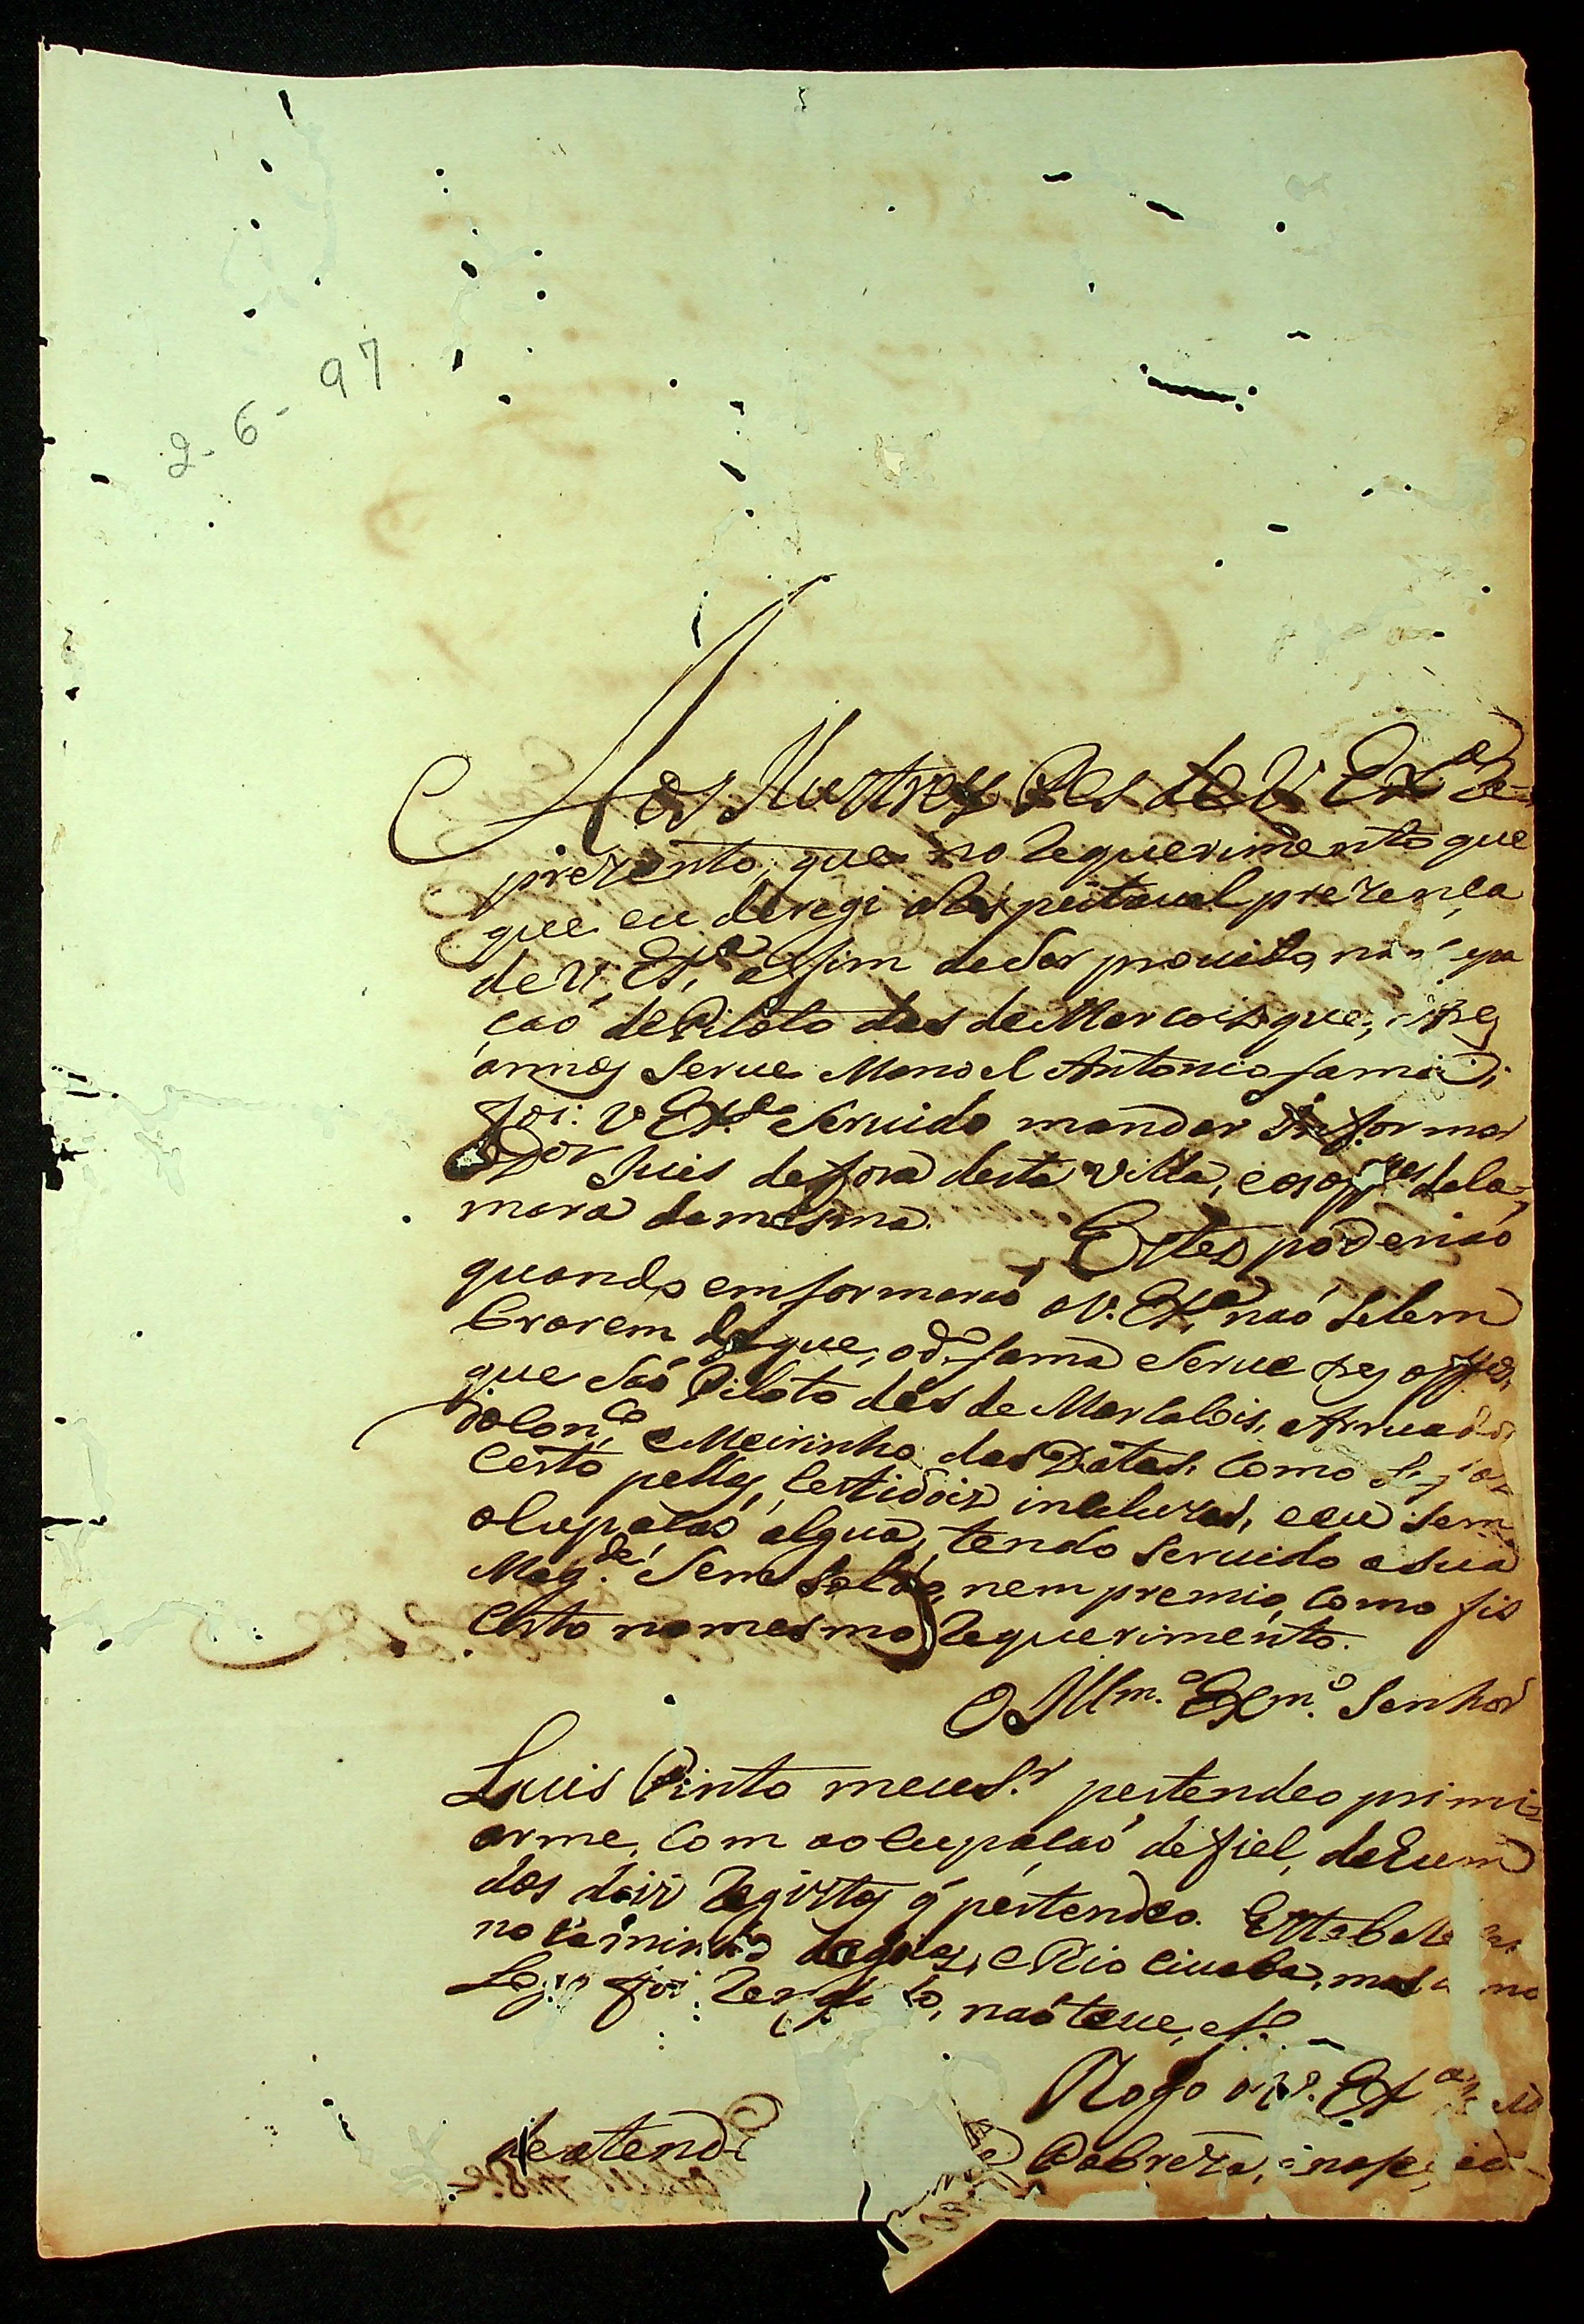 2-6-97
Aos Illustres Pes de V. Exa. Re=
prezento, que no Requerimento que
que eu deregi a Respeitavel prezença
de V. Exa. a fim de Ser provido na
çaó de Piloto das de Marcois que, tres
annos Serve Manoel Antonio fama;
foi: V Exa. Servido mandar Informar
Dor Juis de fora desta Villa, e os offes. da Ca=
mara da mesma. Estes poderiaó
quando emformaraó a V. Exa. naó Se lem
brarem de que, o do. fama Serve tres offos.
que Saó Piloto das de Marcacois, Arruador
do Conco. e Meirinho das Datas, Como
Certo pellas, Certidois incluzas, e eu Sem
ocupacaó algua, tendo Servido a Sua
Magde. Sem Soldo, nem premio, Como fis
Certo no mesmo Requerimento.
O Illmo. Exmo. Senhor
Luis Pinto meu Sr. pertendeo primi=
arme, Com a ocupacaó de fiel, de hum
dos dois Registos q' pertendeo. Estabele
no Caminho de goiaz, e Rio Cuiaba, mas
Logo foi naó teve, ef.o
Rogo a V. Exa.
de atende
Pobreza,